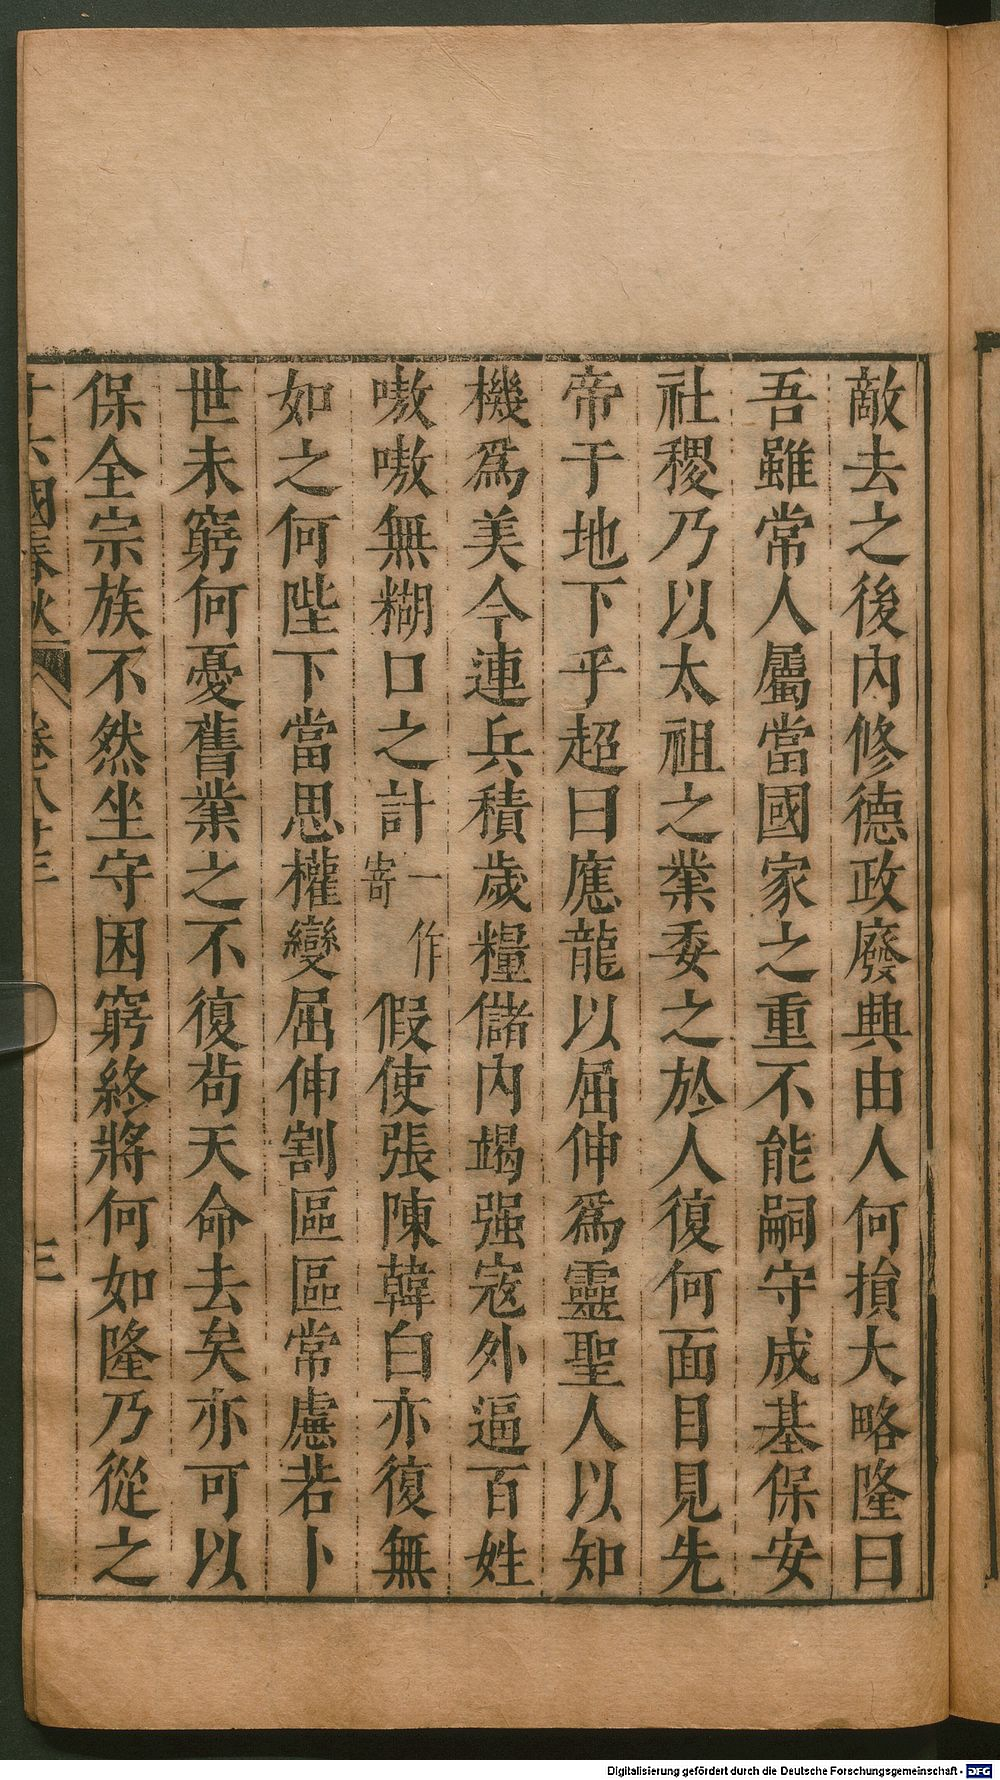 敵去之後內修德政廢興由人何損大略隆曰
吾雖常人屬當國家之重不能嗣守成基保安
社稷乃以太祖之業委之於人復何面目見先
帝于地下乎超曰應龍以屈伸爲靈聖人以知
機爲美今連兵積歲糧儲內竭强寇外逼百姓
嗷嗷無糊口之計一作寄假使張陳韓白亦復無
如之何陛下當思權變屈伸割區區常慮若卜
世未窮何憂舊業之不復茍天命去矣亦可以
保全宗族不然坐守困窮終將何如隆乃從之
十六國春秋 卷八十三 三
Digitalisierung gefördert durch die Deutsche Forschungsgemeinschaft - DFG